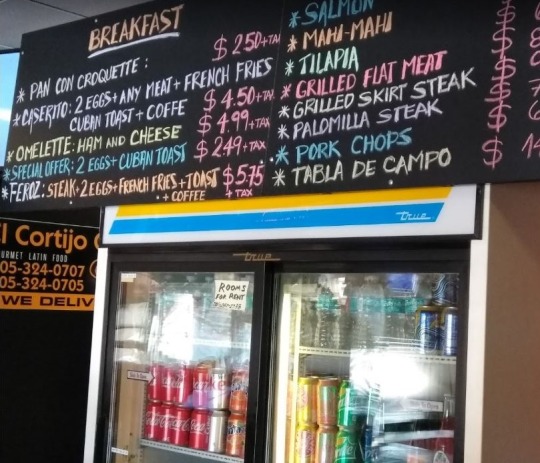 BREAKFAST
* PAN CON CROQUETTE : $2.50+TAX
* CASERITO: 2 EGGS + ANY MEAT + FRENCH FRIES
CUBAN TOAST + COFFE $4.50+TAX
* OMELETTE: HAM AND CHEESE $4.99+TAX
*SPECIAL OFFER: 2 EGGS + CUBAN TOAST $2.49+TAX
*FEROZ: STEAK+2 EGGS+FRENCH FRIES+TOAST $5.75
+ COFFEE + TAX
*SALMON $
*MAHI-MAHI $
*TILAPIA $
*GRILLED FLAT MEAT $
*GRILLED SKIRT STEAK $
*PALOMILLA STEAK $
*PORK CHOPS $
*TABLA DE CAMPO $14
true
true
El Cortijo
GOURMET LATIN FOOD
05-324-0707
05-324-0705
WE DELIV
ROOMS
FOR RENT
Coca-Cola